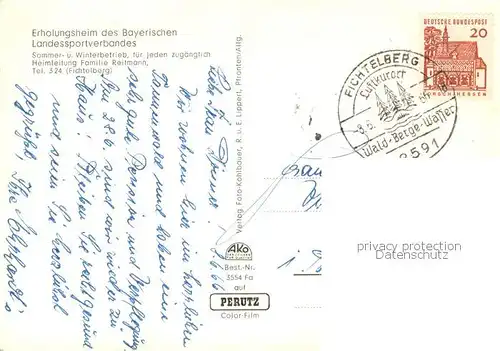 Erholungsheim des Bayerischen
Landessportverbandes
Sommer- u. Winterbetrieb, für jeden zugänglich
Heimleitung Familie Reitmann,
Tel. 324 (Fichtelberg)
3.6.66
Wir wohnen hier im herrlichen
und haben eine
sehr gute Pension und Verpflegung
Am 28.6. sind wir wieder zu
Haus! Bleiben Sie recht gesund
und seien Sie herzlichst
gegrüßt, Ihre
Verlag Foto-Kohlbauer, R. u. E. Lippert, Pfronten/Allg.
AKO
Best.-Nr.
3554 Fa
auf
PERUTZ
Color-Film
FICHTELBERG
Luftkurort
Wald-Berge-Wasser
8591
DEUTSCHE BUNDESPOST
20
LORSCH/HESSEN
privacy protection
Datenschutz